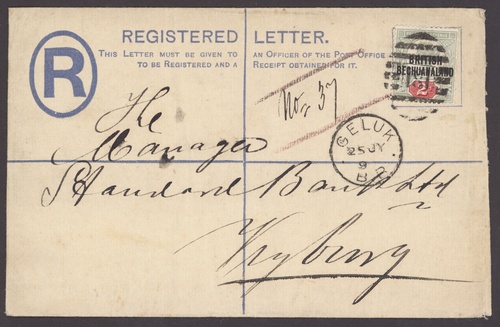 REGISTERED LETTER.
THIS LETTER MUST BE GIVEN TO AN OFFICER OF THE POST OFFICE
TO BE REGISTERED AND A RECEIPT OBTAINED FOR IT.
R
BRITISH
BECHUANALAND
2
No. 37
GELUK.
25 JY
B.B
The
Manager
Standard Bank Ltd
Vryburg